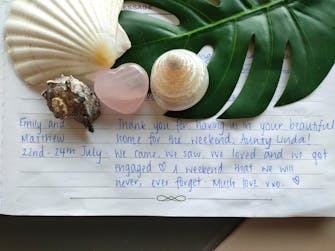 Emily and
Matthew
22nd - 24th July
Thank you for having us in your beautiful
home for the weekend, Aunty Linda!
We came, we saw, we loved and we got
engaged ♡ A weekend that we will
never, ever forget. Much love xxo. ♡